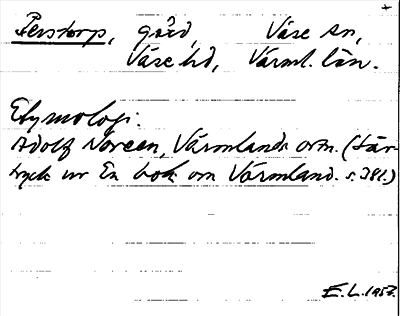 Perstorp, gård, Väse sn,
Väse hd, Värml. län.
Etymologi.
Adolf Noreen, Värmlands ortn. (Sär-
tryck ur En bok om Värmland. s. 381.)
E. L. 1957.